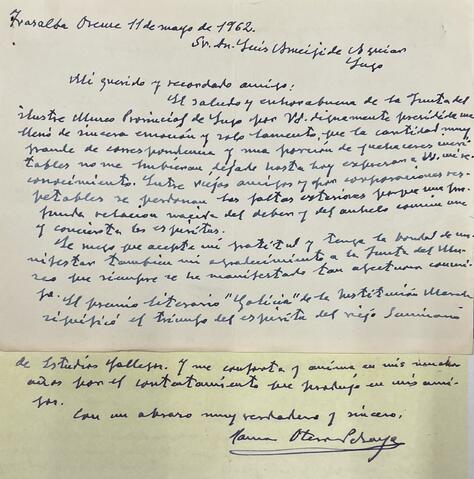 Trasalba Orense 11 de mayo de 1962.
Sr. Dn. Luis Ameijide Aguiar
Lugo
Mi querido y recordado amigo:
El saludo y enhorabuena de la Junta del
ilustre Museo Provincial de Lugo por Vd. dignamente presidida me
llenó de sincera emoción y solo lamento, que la cantidad muy
grande de correspondencia y una porción de quehaceres inevi-
tables no me hubieran dejado hasta hoy expresar a Vd. mi re-
conocimiento. Entre viejos amigos y por corporaciones res-
petables se perdonan las faltas exteriores porque una pro-
funda relacion nacida del deber y del anhelo común une
y concierta los espíritus.
Le ruego que acepte mi gratitud y tenga la bondad de ma-
nifestar también mi agradecimiento a la Junta del Mu-
seo que siempre se ha manifestado tan afectuosa conmi-
go. El premio literario "Galicia" de la Institución March
significó el triunfo del espíritu del viejo Seminario
de Estudios Gallegos. Y me conforta y anima en mis muchos
años por el contentamiento que produjo en mis ami-
gos.
Con un abrazo muy verdadero y sincero,
Ramon Otero Pedrayo